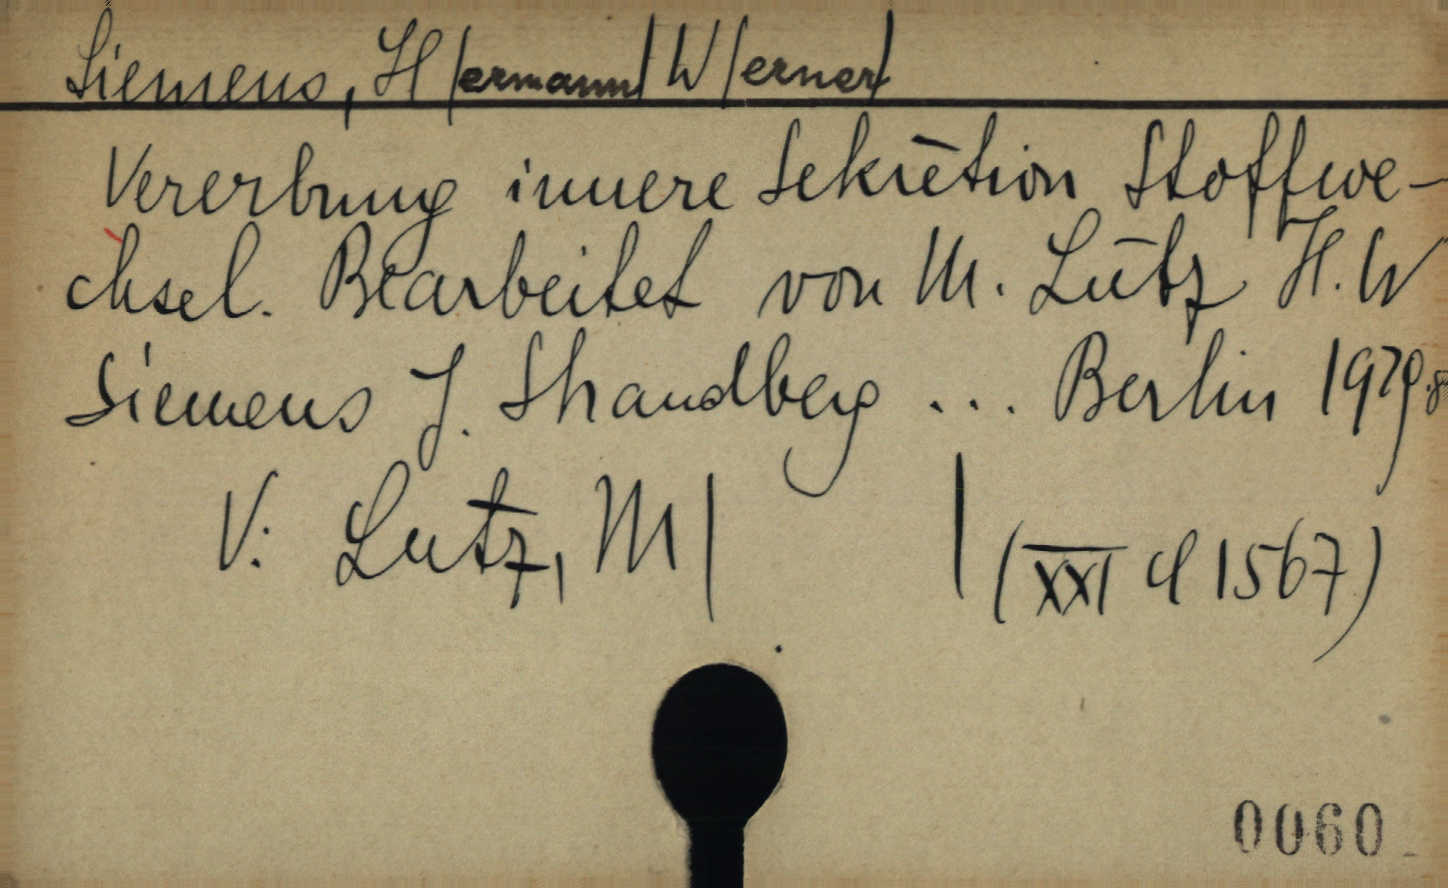 Siemens, H/ermann/ W/erner/
Vererbung innere Sekretion Stoffwe-
chsel. Bearbeitet von M. Lutz H.W
Siemens J. Shandberg ... Berlin 1929.8
V: Lutz, M/ / (XXI d 1567)
0060